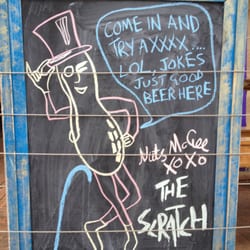 COME IN AND
TRY A XXXX....
LOL, JOKES
JUST GOOD
BEER HERE
Nuts McGee
XOXO
THE
SCRATCH